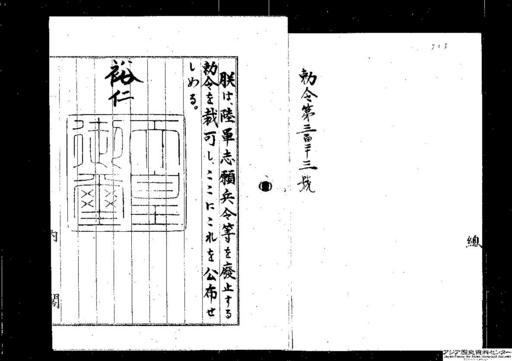 總
勅令第三百二十三號
朕は、陸軍志願兵令等を廢止する
勅令を裁可し、ここにこれを公布せ
しめる。
裕仁
天皇
御璽
内閣
アジア歴史資料センター